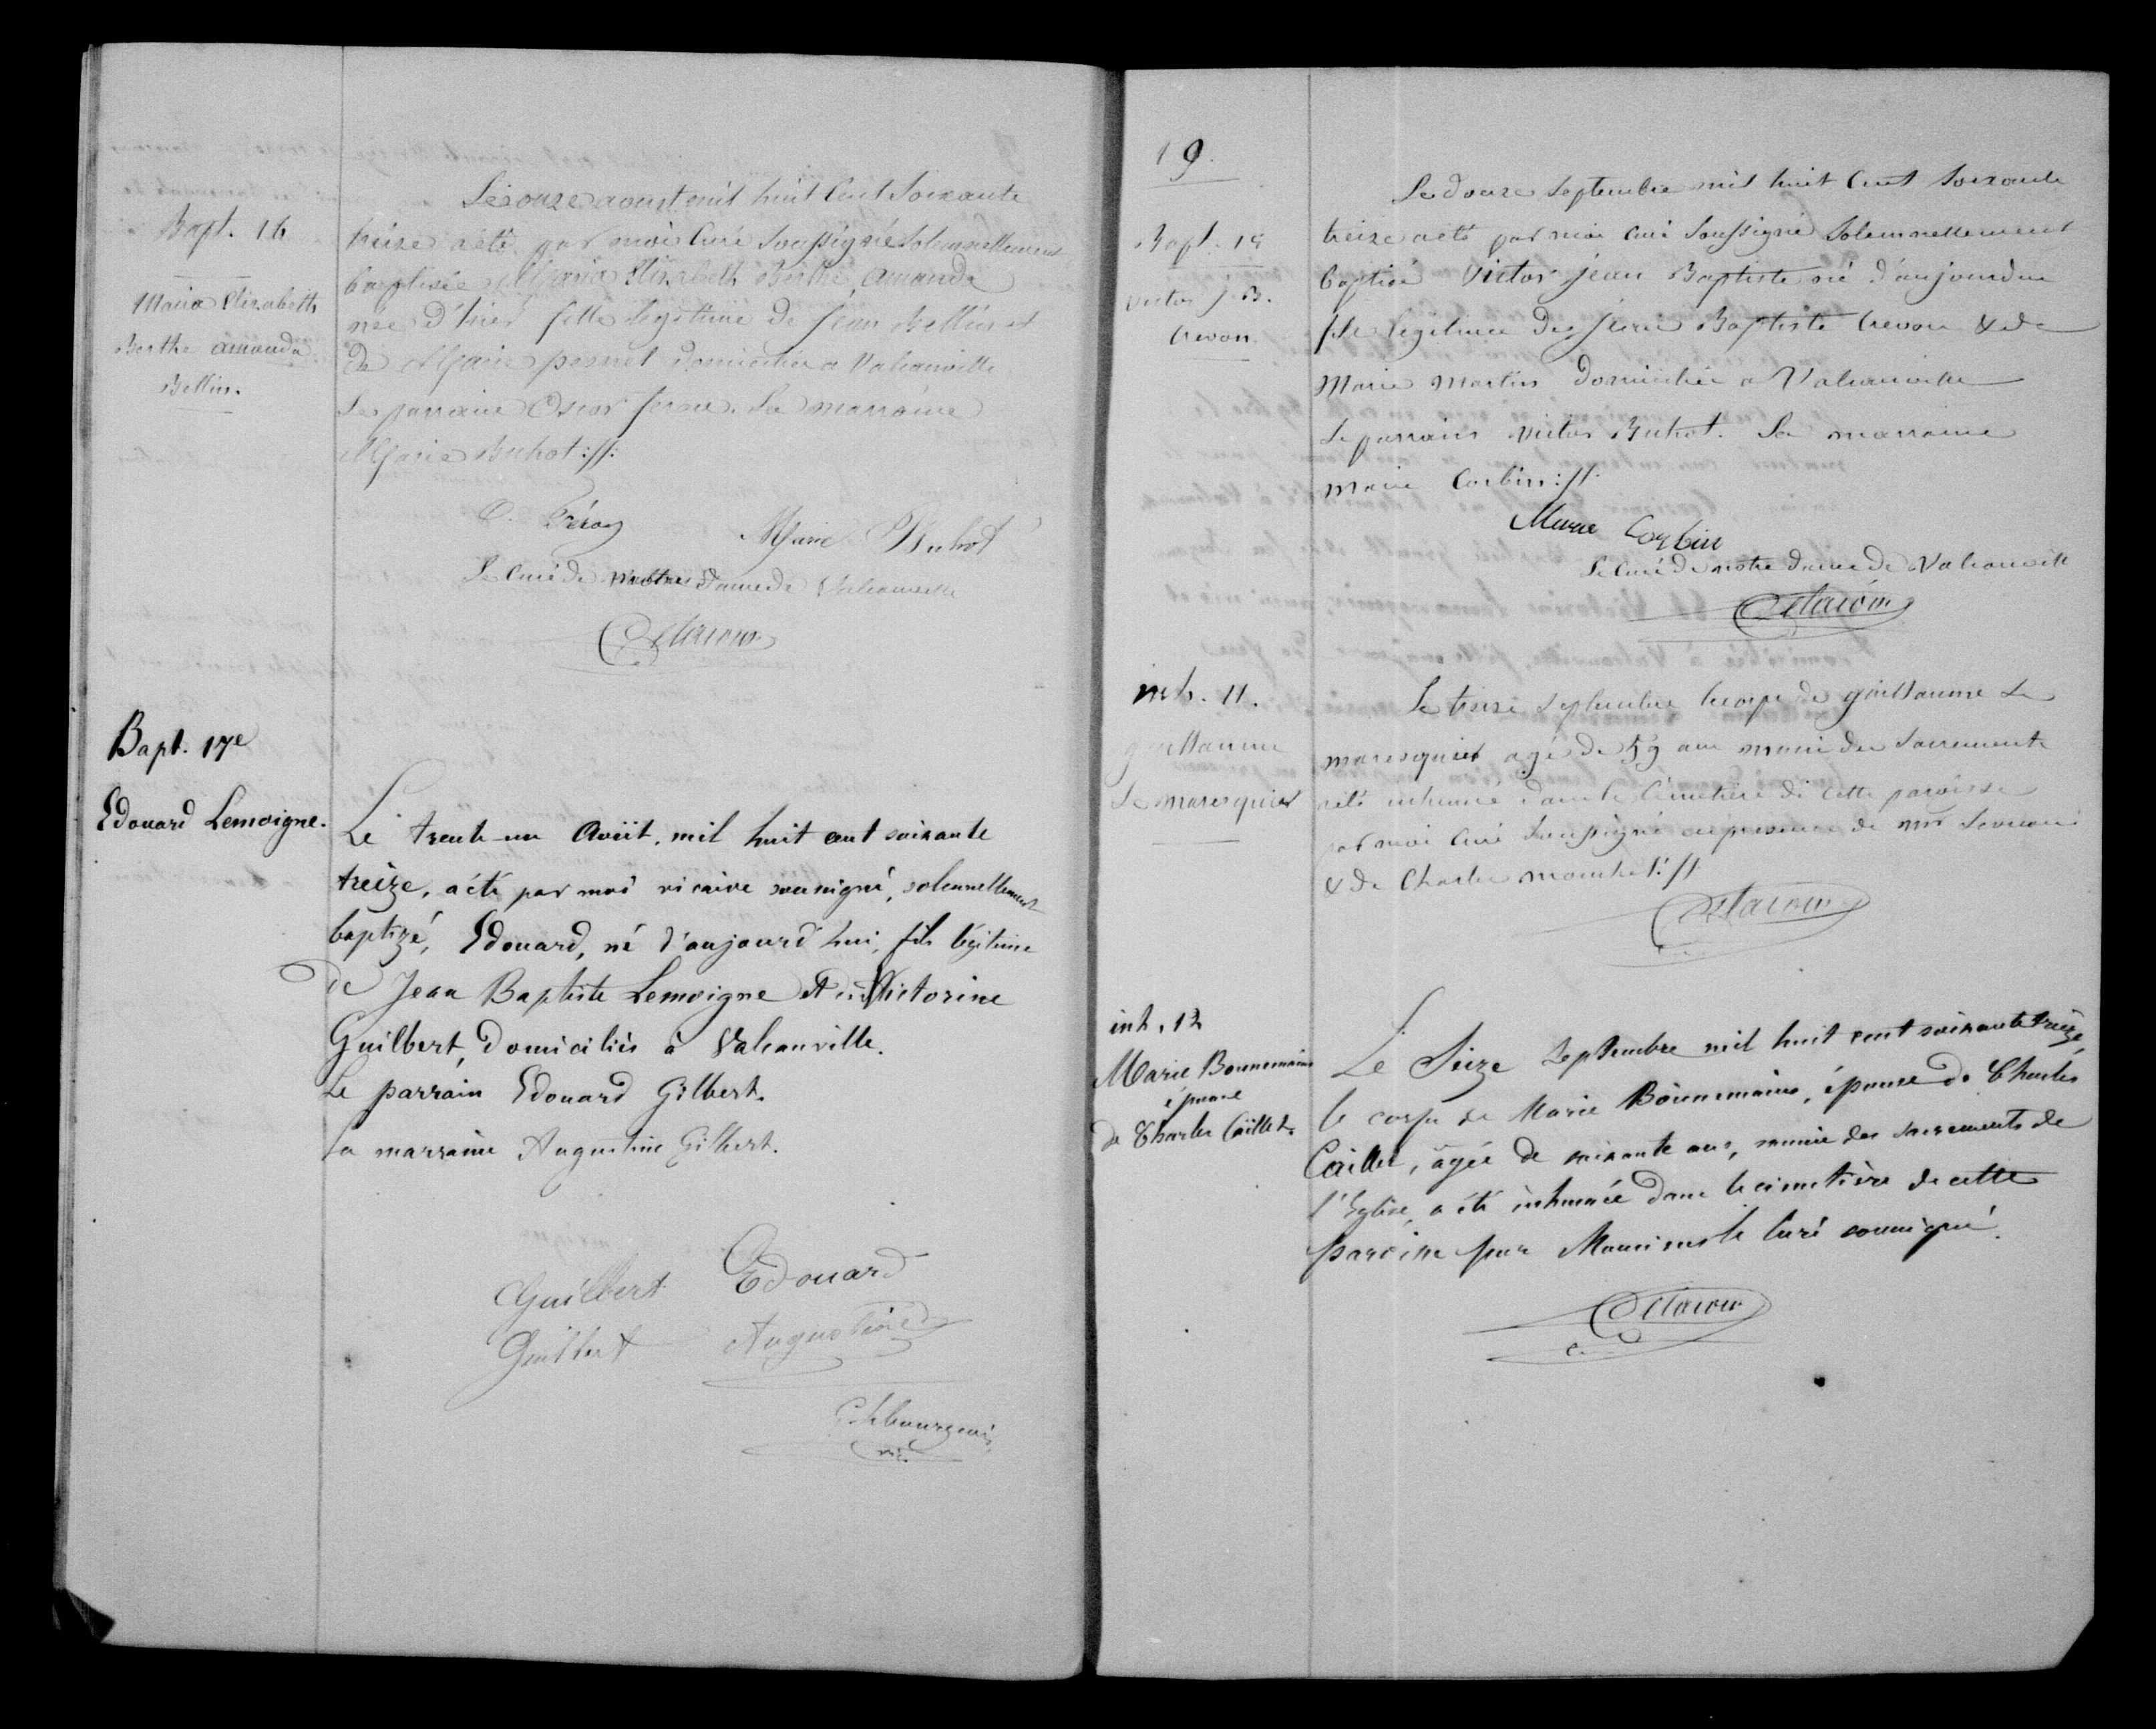 Bapt. 16
Maria Elizabeth
Berthe amanda
Bellin.
Le onze aoust mil huit Cent Soixante
treize a été par moi Curé Soussigné Solennellement
baptisée Maria Elizabeth Berthe Amanda
née d'hier fille legitime de Jean Bellin et
de Marie pesnel domiciliés a Valcanville
Le parrain Oscar feron. La marraine
Marie Buhot :ff:
O. Féron Marie Buhot
Le Curé de notre dame de Valcanville
Bapt. 17e
Edouard Lemoigne.
Le trente-un Août, mil huit cent soixante
treize, a été par moi vicaire soussigné, solennellement
baptizé, Edouard, né d'aujourd'hui, fils légitime
de Jean Baptiste Lemoigne et de Victorine
Guilbert, domiciliés à Valcanville.
Le parrain Edouard Gilbert.
La marraine Augustine Gilbert.
Guilbert Edouard
Guilbert Augustine
Lebourgeois
vic.
19.
Bapt. 18
Victor J. B.
Crevon.
Le douze Septembre mil huit Cent Soixante
treize a été par moi Curé Soussigné Solennellement
baptisé Victor jean Baptiste né d'aujourdhui
fils legitime de Jean Baptiste Crevon & de
Marie Martin domiciliés a Valcanville
Le parrain Victor Buhot. La marraine
Marie Corbin :ff:
Marie Corbin
Le Curé de notre dame de Valcanville
inh. 11.
guillaume
Le maresquier
Le treize Septembre le corps de guillaume Le
maresquier agé de 59 ans muni des Sacrements
a été inhumé dans le Cimetière de cette paroisse
par moi Curé Soussigné en presence de mr
& de Charles mouchel :ff
inh. 12
Marie Bonnemains
épouse
de Charles Caillet.
Le Seize Septembre mil huit cent soixante treize,
le corps de Marie Bonnemains, épouse de Charles
Caillet, âgée de soixante ans, munie des sacrements de
l'Eglise, a été inhumée dans le cimetière de cette
paroisse par Monsieur le Curé soussigné.